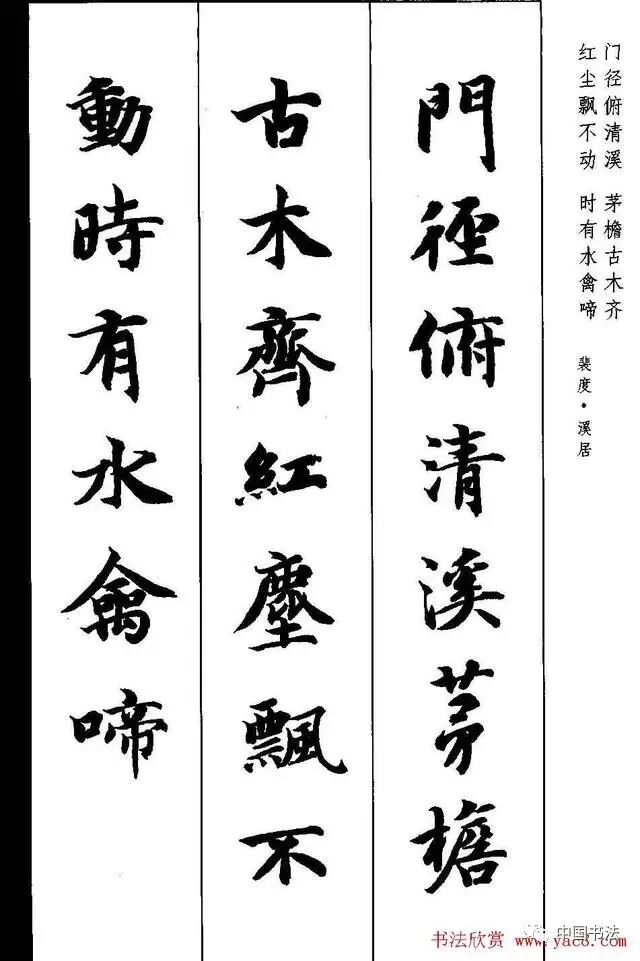 門徑俯清溪茅檐
古木齊紅塵飄不
動時有水禽啼
门径俯清溪 茅檐古木齐
红尘飘不动 时有水禽啼
裴度·溪居
书法欣赏 www.yac8.com
中国书法